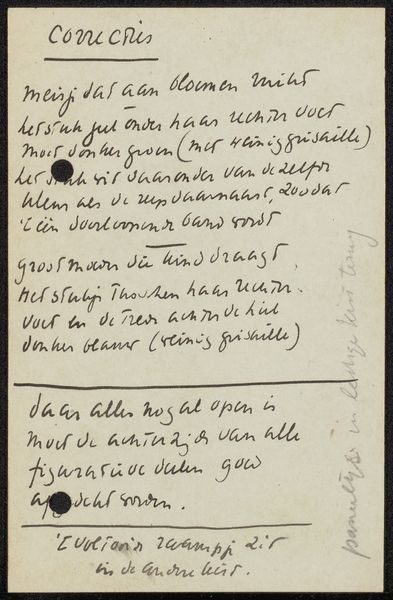 correcties
meisje dat aan bloemen ruikt
het stuk geel onder haar rechter voet
moet donker groen (met weinig grisaille)
het stuk wit daaronder van dezelfde
kleur als de reep daarnaast, zoodat
't één doorloopende band wordt
grootmoeder die kind draagt.
Het stukje tusschen haar rechter
voet en de trede achter de hiel
donker blauw (weinig grisaille)
daar alles nogal open is
moet de achterzijde van alle
figuratieve delen goed
afgedekt worden.
't voltooide raampje zit
in de andere kist.
paneeltjes in ledige kist terug